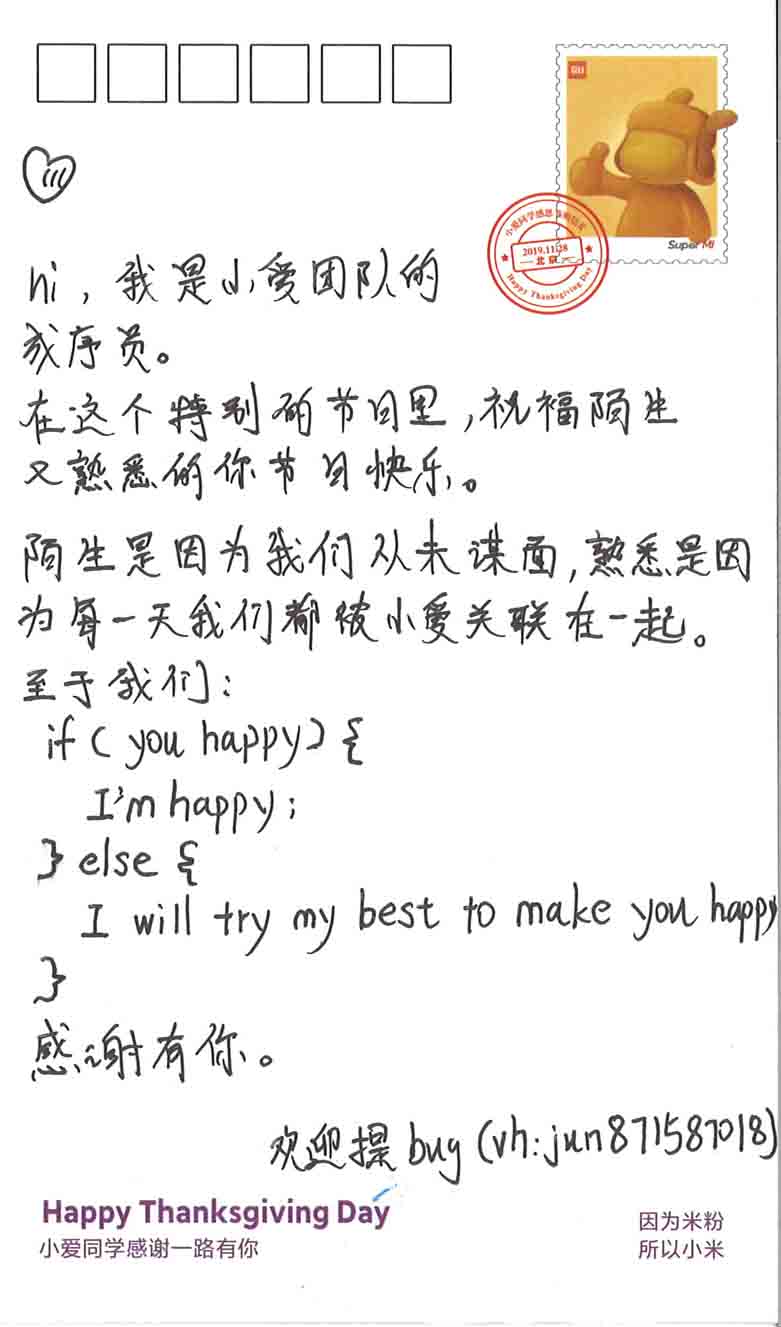 MI
Super MI
小爱同学感恩
2019.11.28
北京
Happy Thanksgiving Day
hi，我是小爱团队的
成序员。
在这个特别的节日里，祝福陌生
又熟悉的你节日快乐。
陌生是因为我们从未谋面，熟悉是因
为每一天我们都被小爱关联在一起。
至于我们：
if ( you happy) {
I'm happy;
} else {
I will try my best to make you happy
}
感谢有你。
欢迎提 bug (vh:jun871587018)
Happy Thanksgiving Day
小爱同学感谢一路有你
因为米粉
所以小米